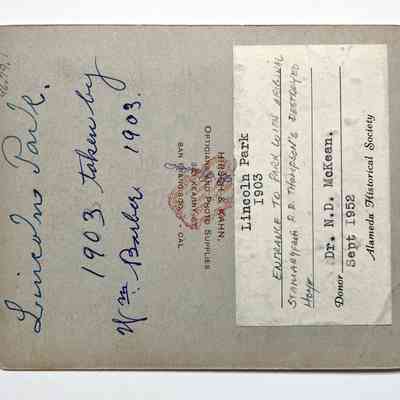 Lincoln Park.
1903 taken by
Wm. Barber 1903.
HIRSCH & KAHN,
OPTICIANS AND PHOTO SUPPLIES
SAN FRANCISCO, CAL
Lincoln Park
1903
ENTRANCE TO PARK WITH ORIGINAL
STANDING FROM R.R. THOMPSON'S DESTROYED
HOME
Dr. N.D. McKean.
Donor
Sept 1952
Alameda Historical Society